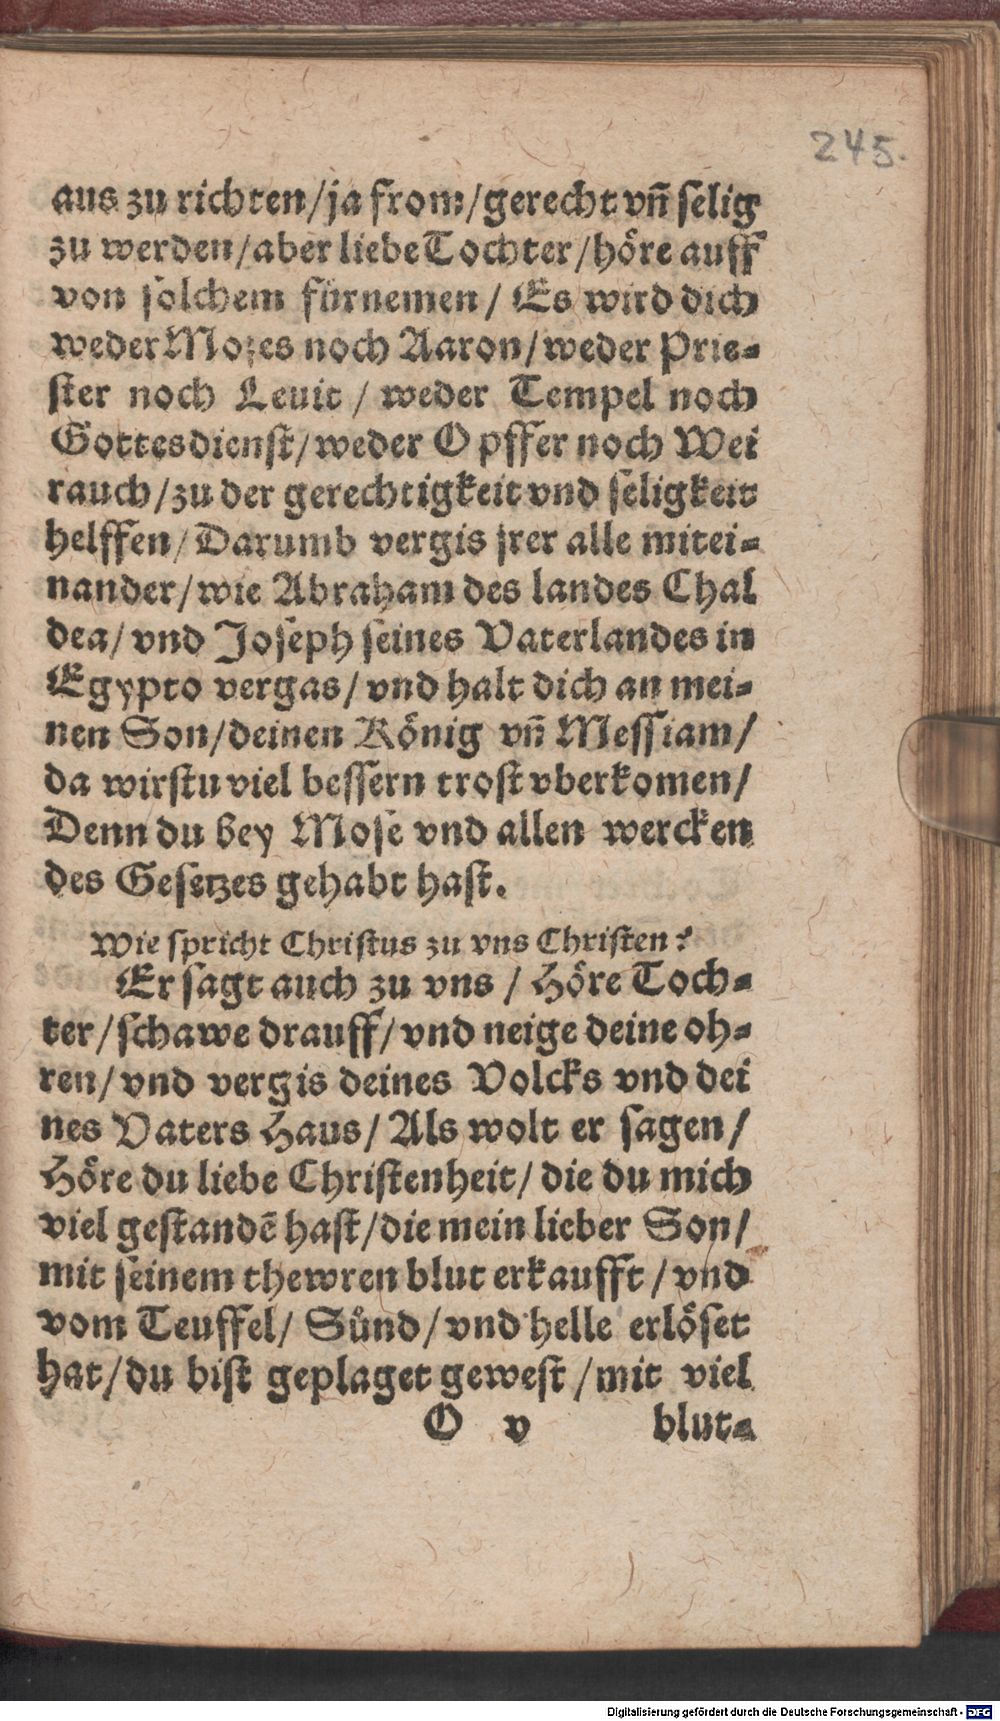 245.
aus zu richten/ja from/gerecht vñ selig
zu werden/aber liebe Tochter/höre auff
von solchem fürnemen/ Es wird dich
weder Mozes noch Aaron/weder Prie-
ster noch Leuit / weder Tempel noch
Gottesdienst/weder Opffer noch Wei
rauch/zu der gerechtigkeit vnd seligkeit
helffen/Darumb vergis jrer alle mitei-
nander/wie Abraham des landes Chal
dea/vnd Joseph seines Vaterlandes in
Egypto vergas/vnd halt dich an mei-
nen Son/deinen König vñ Messiam/
da wirstu viel bessern trost vberkomen/
Denn du bey Mose vnd allen wercken
des Gesetzes gehabt hast.
Wie spricht Christus zu vns Christen?
Er sagt auch zu vns / Höre Toch-
ter/schawe drauff/vnd neige deine oh-
ren/vnd vergis deines Volcks vnd dei
nes Vaters Haus/Als wolt er sagen/
Höre du liebe Christenheit/die du mich
viel gestandē hast/die mein lieber Son/
mit seinem thewren blut erkaufft/vnd
vom Teuffel/ Sünd/vnd helle erlöset
hat/du bist geplaget gewest/mit viel
O v blut-
Digitalisierung gefördert durch die Deutsche Forschungsgemeinschaft - DFG